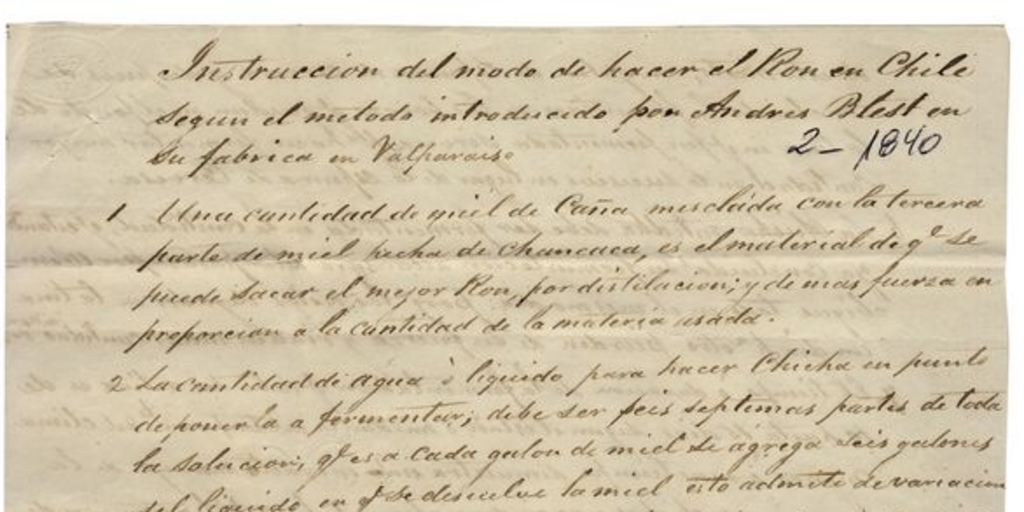 Instruccion del modo de hacer el Ron en Chile
segun el metodo introducido por Andres Blest en
su fabrica en Valparaiso
2 - 1840
1 Una cantidad de miel de Caña mesclada con la tercera
parte de miel hecha de Chancaca, es el material de qe se
puede sacar el mejor Ron, por distilacion; y de mas fuerza en
proporcion a la cantidad de la materia usada.
2 La cantidad de agua ò liquido para hacer Chicha en punto
de ponerla a fermentar; debe ser seis septemas partes de toda
la solucion; qe es a cada galon de miel se agrega seis galones
del liquido en qe se desuelve la miel esto admite de variacion